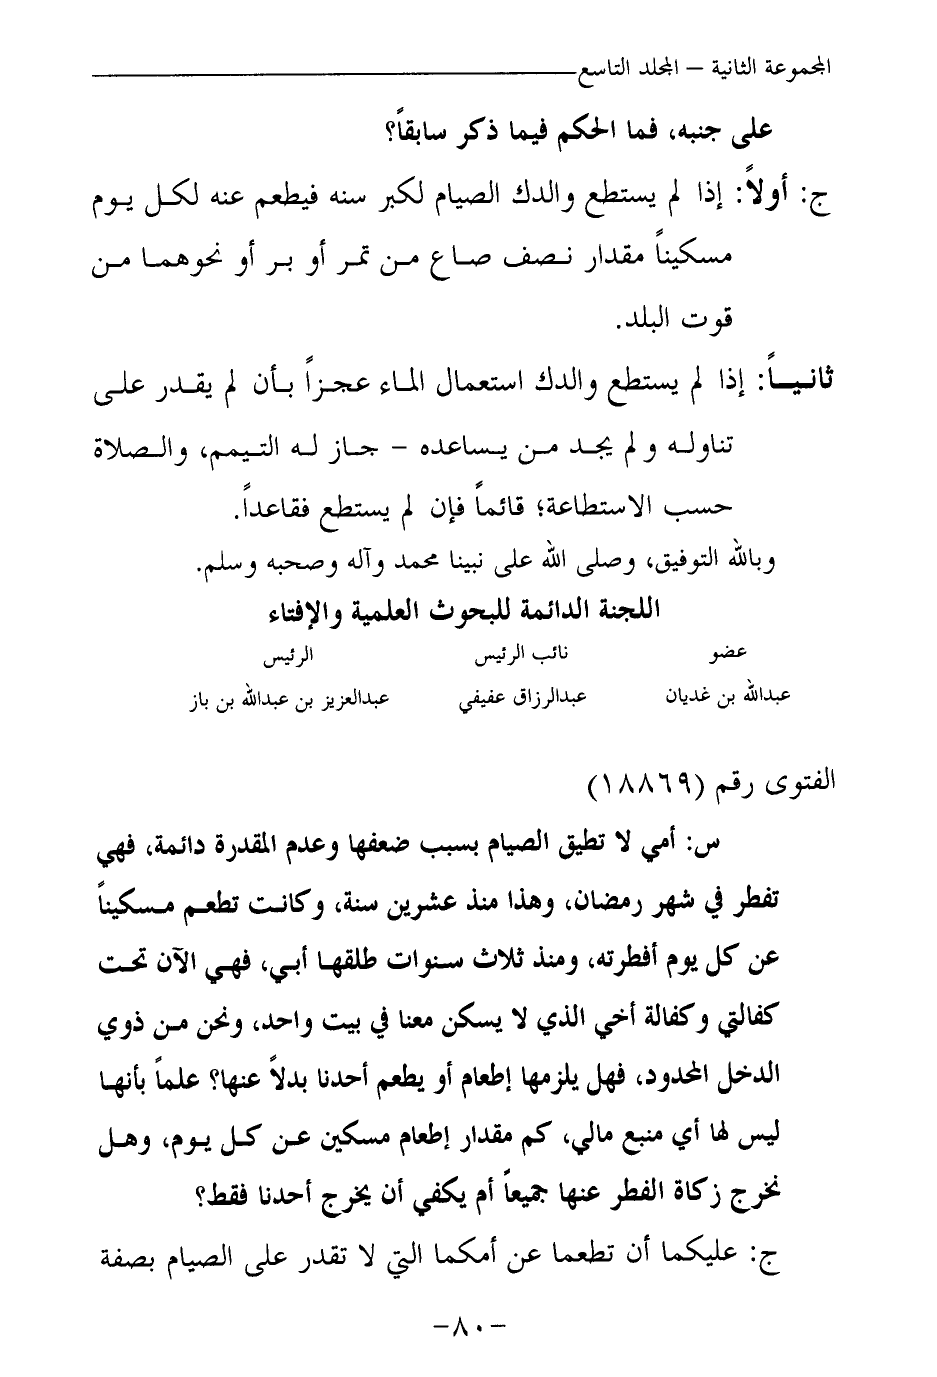 المجموعة الثانية – المجلد التاسع
على جنبه، فما الحكم فيما ذكر سابقاً؟
ج: أولاً: إذا لم يستطع والدك الصيام لكبر سنه فيطعم عنه لكل يوم
مسكيناً مقدار نصف صاع من تمر أو بر أو نحوهما من
قوت البلد.
ثانياً: إذا لم يستطع والدك استعمال الماء عجزاً بأن لم يقدر على
تناوله ولم يجد من يساعده – جاز له التيمم، والصلاة
حسب الاستطاعة؛ قائماً فإن لم يستطع فقاعداً.
وبالله التوفيق، وصلى الله على نبينا محمد وآله وصحبه وسلم.
اللجنة الدائمة للبحوث العلمية والإفتاء
عضو نائب الرئيس الرئيس
عبدالله بن غديان عبدالرزاق عفيفي عبدالعزيز بن عبدالله بن باز
الفتوى رقم (١٨٨٦٩)
س: أمي لا تطيق الصيام بسبب ضعفها وعدم المقدرة دائمة، فهي
تفطر في شهر رمضان، وهذا منذ عشرين سنة، وكانت تطعم مسكيناً
عن كل يوم أفطرته، ومنذ ثلاث سنوات طلقها أبي، فهي الآن تحت
كفالتي وكفالة أخي الذي لا يسكن معنا في بيت واحد، ونحن من ذوي
الدخل المحدود، فهل يلزمها إطعام أو يطعم أحدنا بدلاً عنها؟ علماً بأنها
ليس لها أي منبع مالي، كم مقدار إطعام مسكين عن كل يوم، وهل
نخرج زكاة الفطر عنها جميعاً أم يكفي أن يخرج أحدنا فقط؟
ج: عليكما أن تطعما عن أمكما التي لا تقدر على الصيام بصفة
-٨٠-